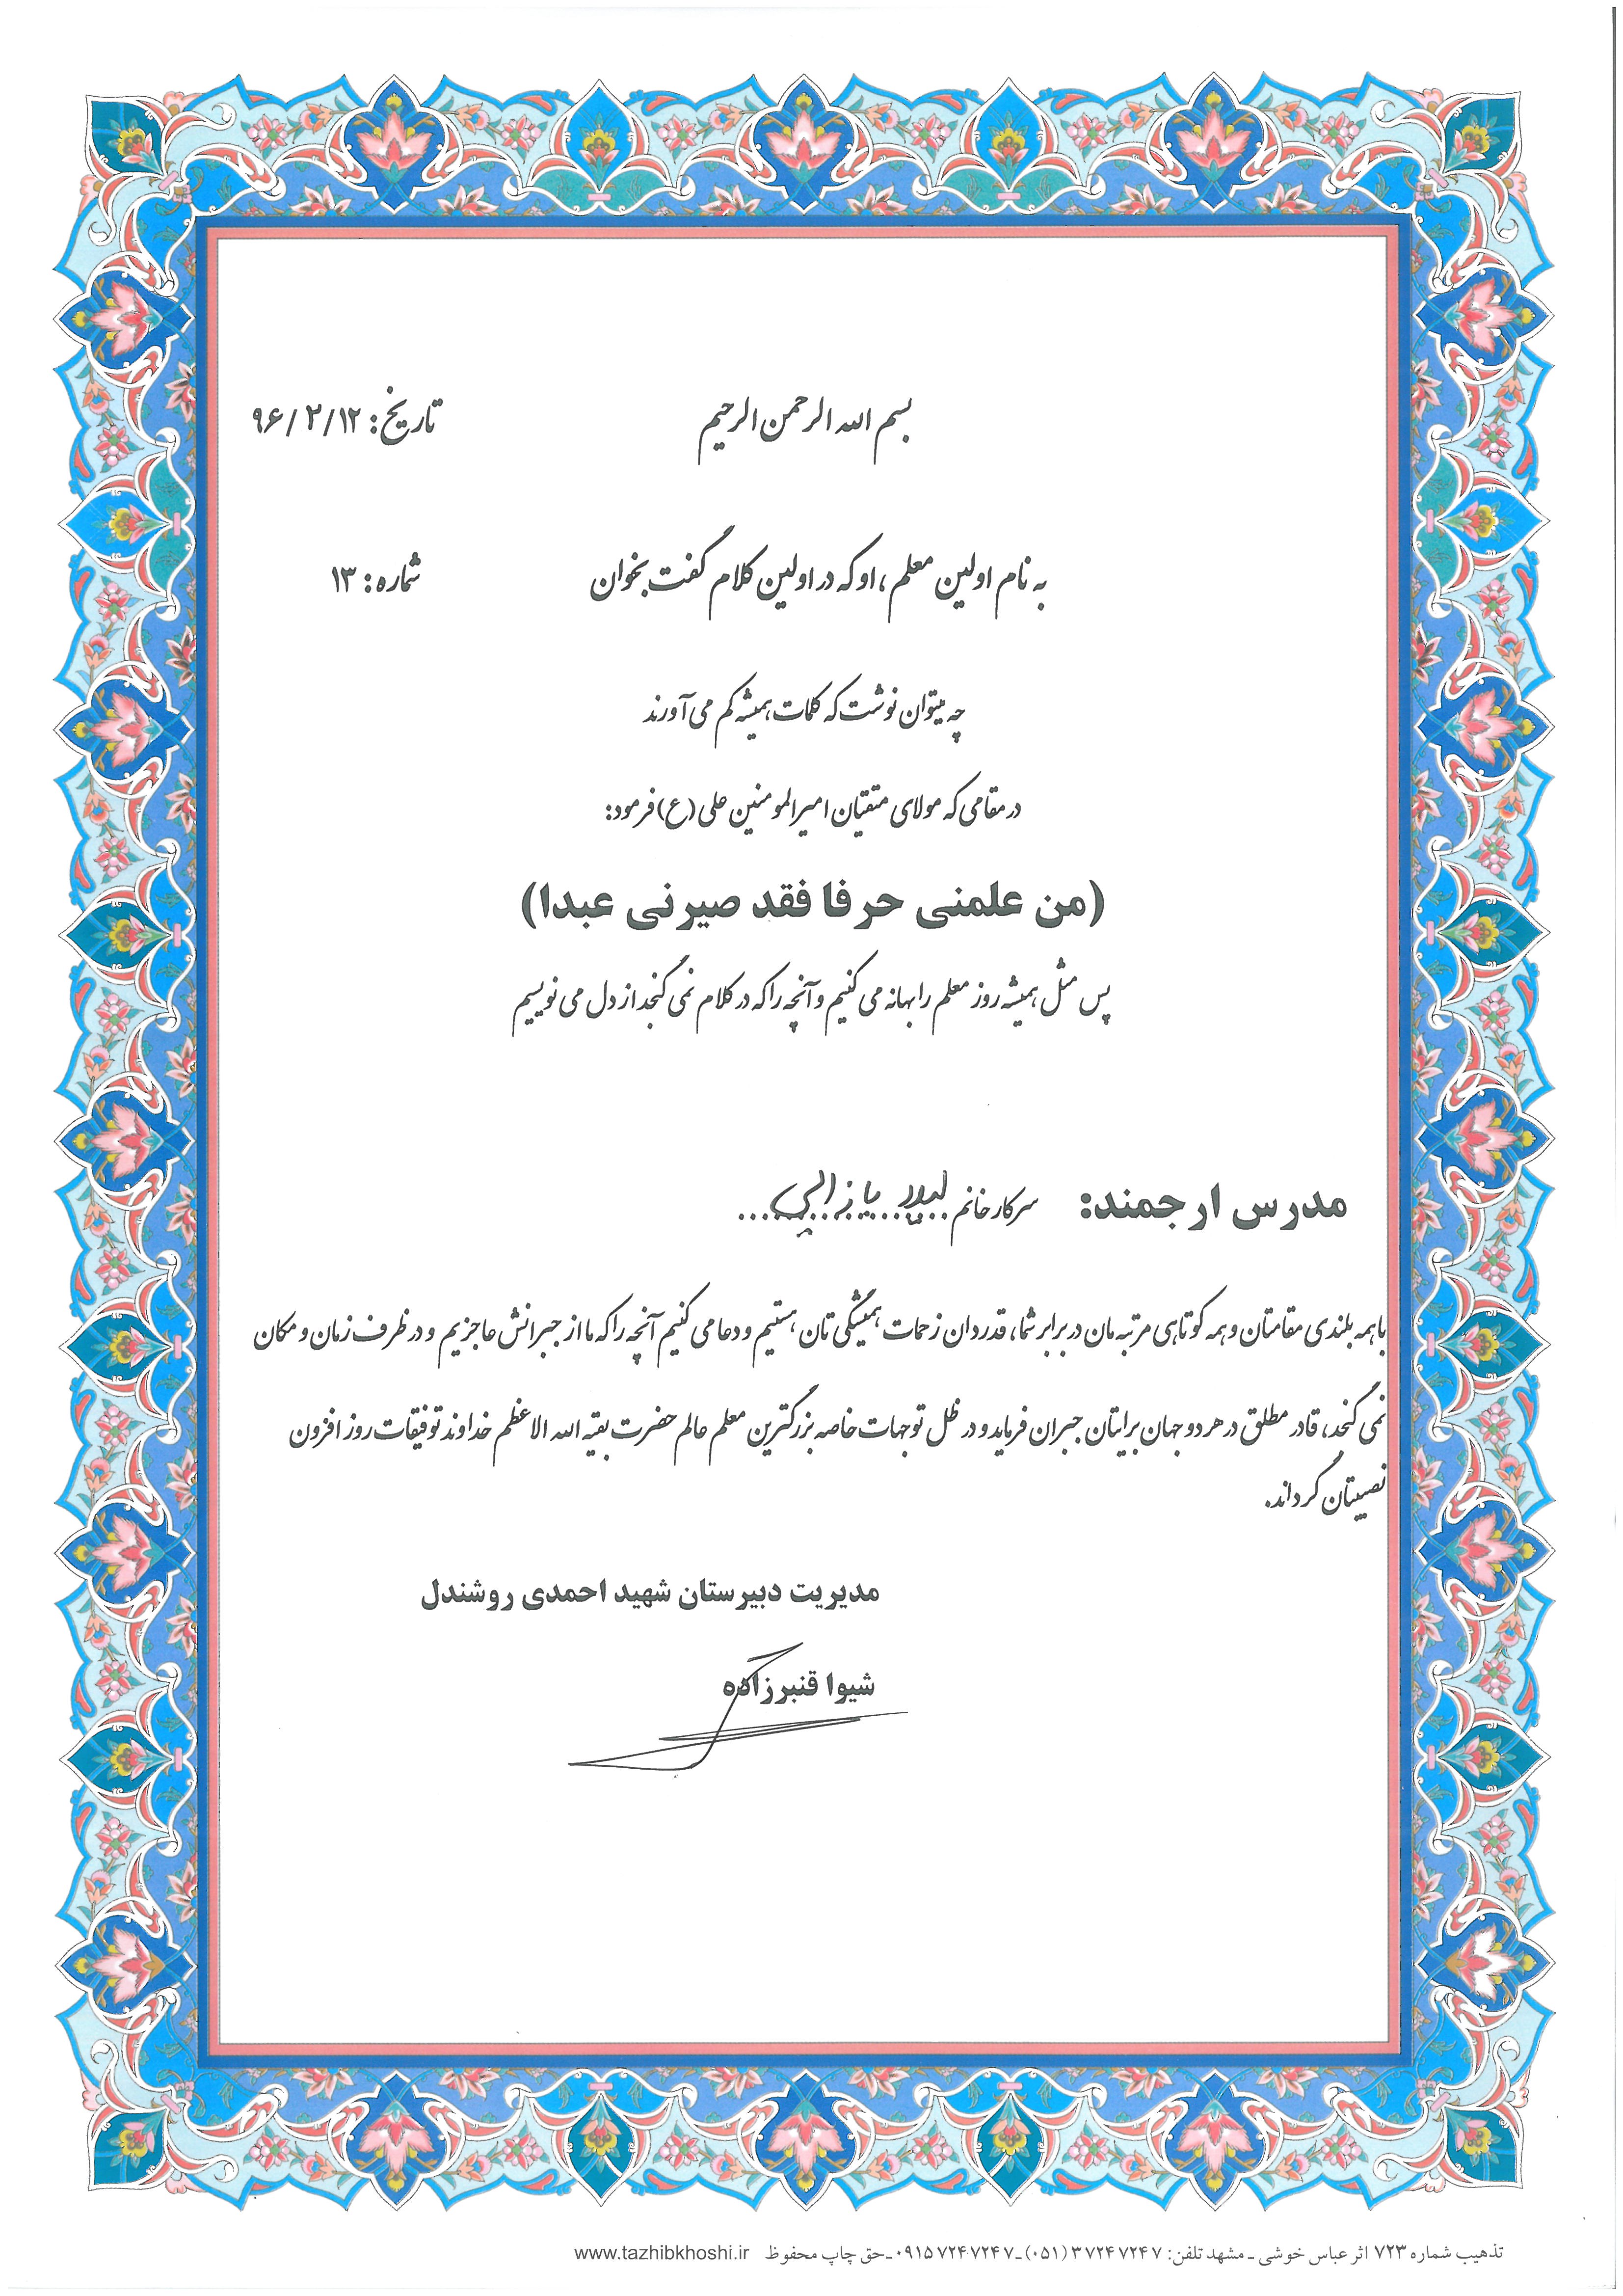 بسم الله الرحمن الرحیم
تاریخ: ۹۶/۲/۱۲
به نام اولین معلم، او که در اولین کلام گفت بخوان
شماره: ۱۳
چه میتوان نوشت که کلمات همیشه کم می آورند
در مقامی که مولای متقیان امیرالمومنین علی (ع) فرمود:
(من علمنی حرفا فقد صیرنی عبدا)
پس مثل همیشه روز معلم را بهانه می کنیم و آنچه را که در کلام نمی گنجد از دل می نویسیم
مدرس ارجمند: سرکار خانم
با همه بلندی مقامتان و همه کوتاهی مرتبه مان در برابر شما، قدردان زحمات همیشگی تان هستیم و دعا می کنیم آنچه را که ما از جبرانش عاجزیم و در ظرف زمان و مکان
نمی گنجد، قادر مطلق در هر دو جهان برایتان جبران فرماید و در ظل توجهات خاصه بزرگترین معلم عالم حضرت بقیه الله الاعظم خداوند توفیقات روز افزون
نصیبتان گرداند.
مدیریت دبیرستان شهید احمدی روشندل
شیوا قنبرزاده
تذهیب شماره ۷۲۳ اثر عباس خوشی ـ مشهد تلفن: ۳۷۲۴۷۲۴۷ (۰۵۱) ـ ۰۹۱۵۷۲۴۷۲۴۷ ـ حق چاپ محفوظ www.tazhibkhoshi.ir